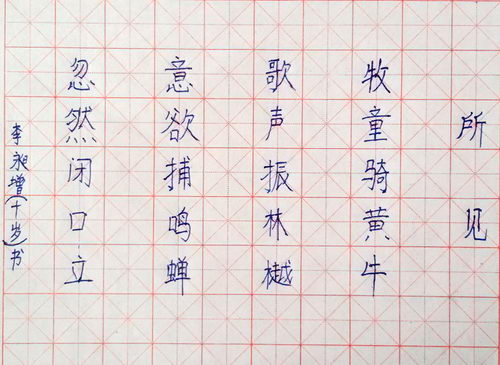 所见
牧童骑黄牛
歌声振林樾
意欲捕鸣蝉
忽然闭口立
李昶增(十岁)书